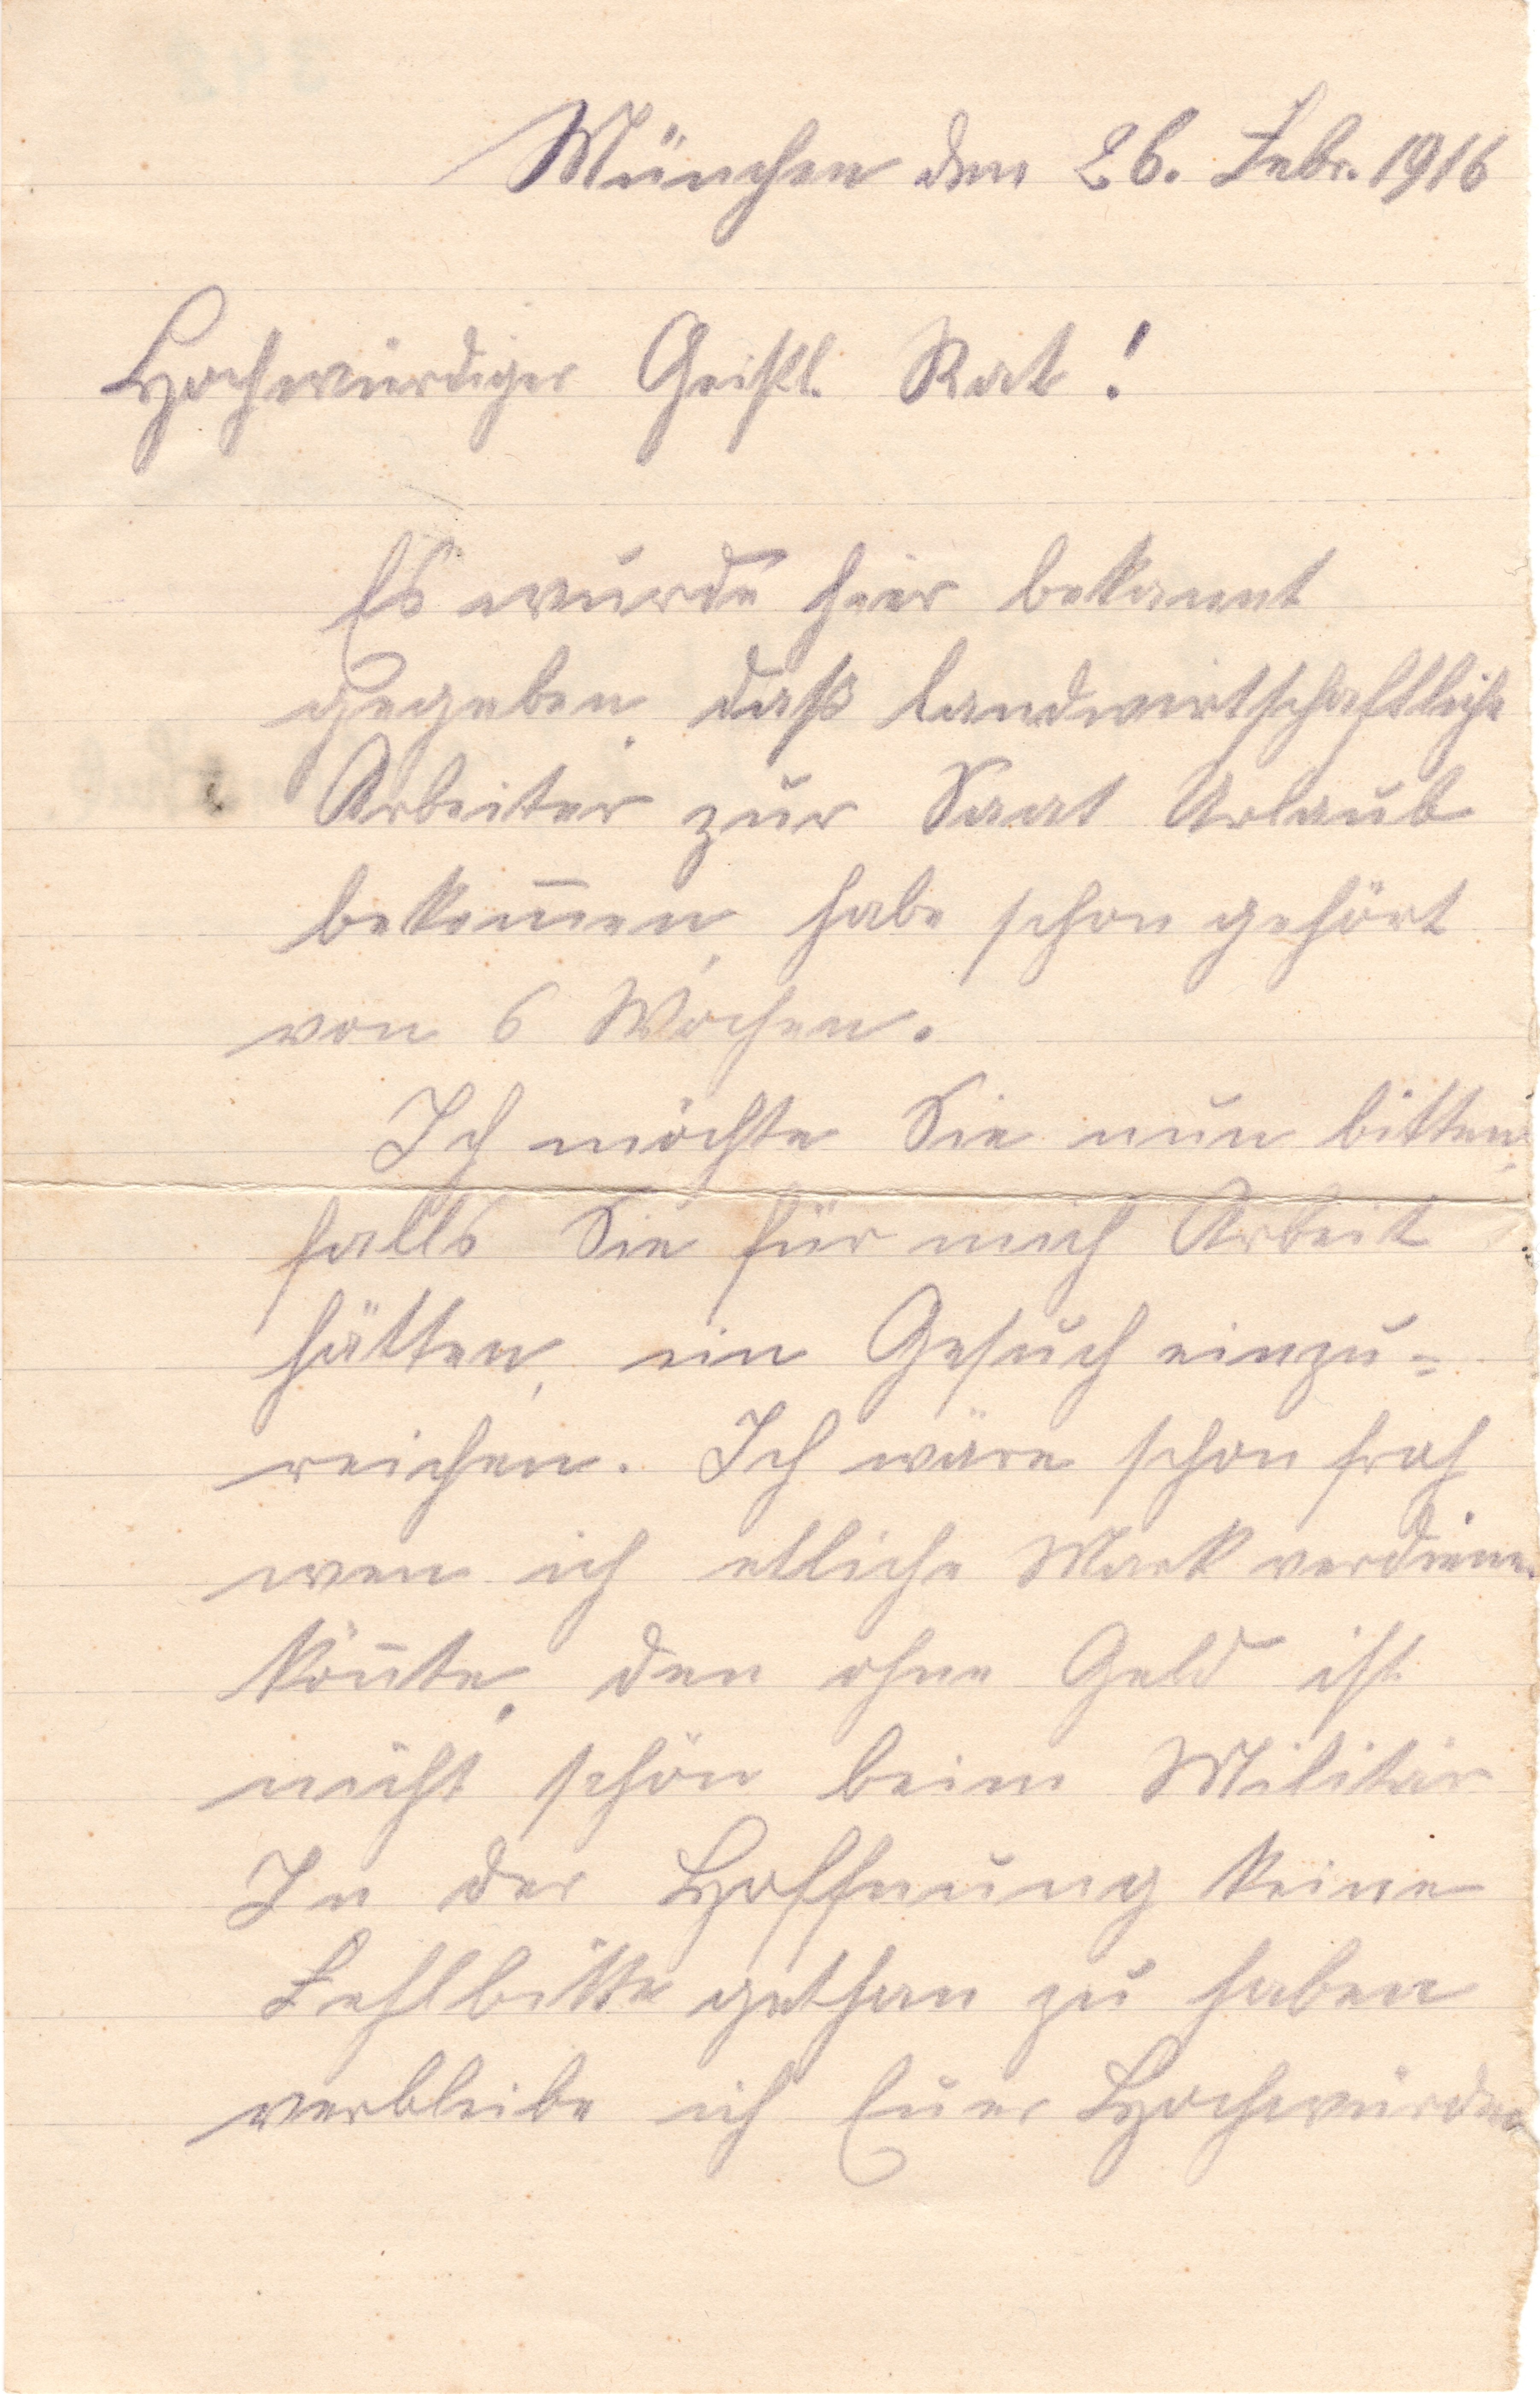 München den 26. Febr. 1916
Hochwürdiger Geistl. Rat!
Es wurde hier bekannt
gegeben, daß landwirtschaftliche
Arbeiter zur Saat Urlaub
bekom̅en, habe schon gehört
von 6 Wochen.
Ich möchte Sie nun bitten,
falls Sie für mich Arbeit
hätten, ein Gesuch einzu=
reichen. Ich wäre schon froh
wen ich etliche Mark verdienen
kön̅te, den ohne Geld ist
nicht schön beim Militär
In der Hoffnung keine
Fehlbitte gethan zu haben
verbleibe ich Euer Hochwürden